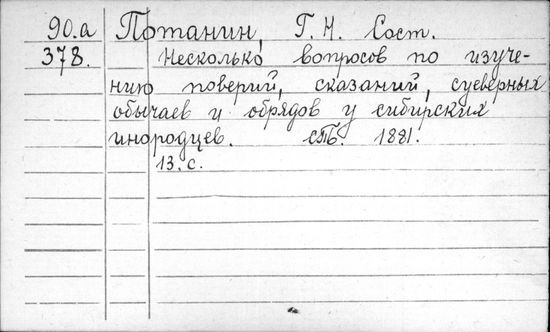 90.а Потанин, Г. Н. Сост.
378. Несколько вопросов по изуче-
нию поверий, сказаний, суеверных
обычаев и обрядов у сибирских
инородцев. СПб. 1881.
13. с.